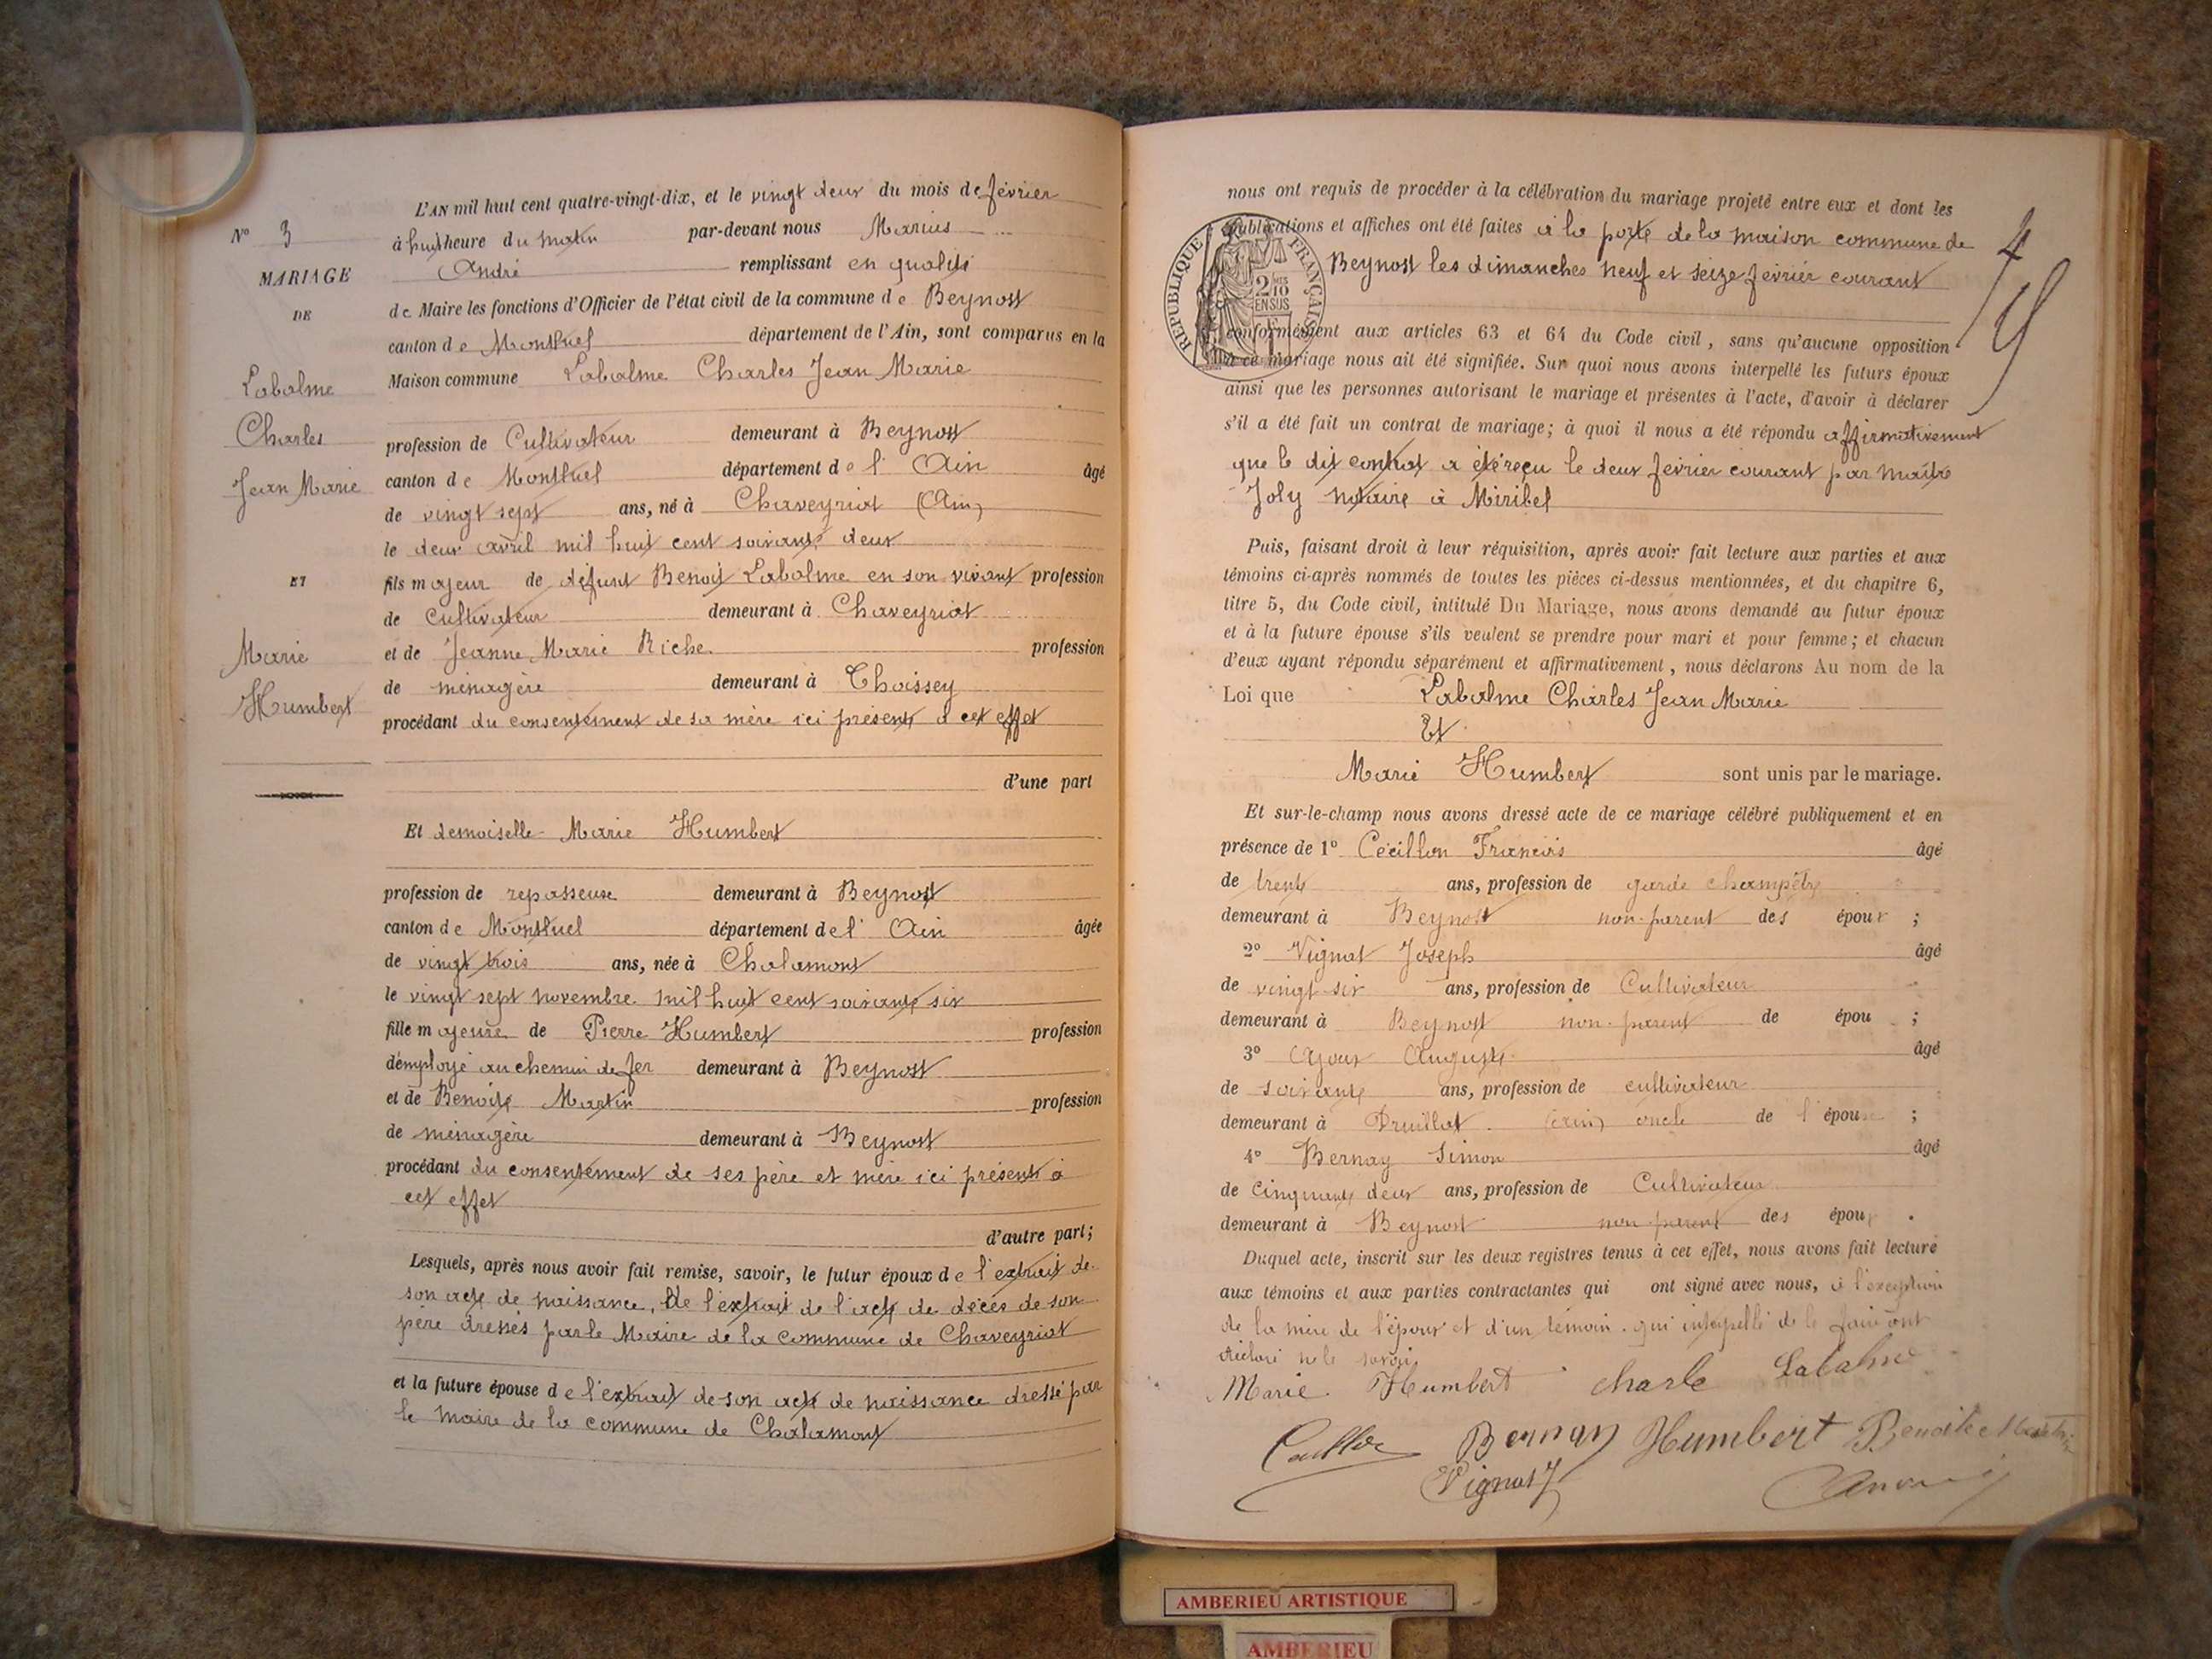 L'AN mil huit cent quatre-vingt-dix, et le vingt deux du mois de février
N° 3
à huit heure du matin par-devant nous Marius
MARIAGE
André remplissant en qualité
DE
de Maire les fonctions d'Officier de l'état civil de la commune de Beynost
canton de Montluel département de l'Ain, sont comparus en la
Labalme
Maison commune Labalme Charles Jean Marie
Charles
profession de Cultivateur demeurant à Beynost
Jean Marie
canton de Montluel département de l'Ain âgé
de vingt sept ans, né à Chaveyriat (Ain)
le deux avril mil huit cent soixante deux
ET
fils majeur de défunt Benoit Labalme en son vivant profession
de cultivateur demeurant à Chaveyriat
Marie
et de Jeanne Marie Riche profession
Humbert
de ménagère demeurant à Thoissey
procédant du consentement de sa mère ici présente à cet effet
d'une part
Et demoiselle Marie Humbert
profession de repasseuse demeurant à Beynost
canton de Montluel département de l'Ain âgée
de vingt trois ans, née à Chalamont
le vingt sept novembre mil huit cent soixante six
fille majeure de Pierre Humbert profession
d'employé au chemin de fer demeurant à Beynost
et de Benoite Martin profession
de ménagère demeurant à Beynost
procédant du consentement de ses père et mère ici présents à
cet effet
d'autre part;
Lesquels, après nous avoir fait remise, savoir, le futur époux de l'extrait de
son acte de naissance, de l'extrait de l'acte de décès de son
père dressés par le Maire de la commune de Chaveyriat
et la future épouse de l'extrait de son acte de naissance dressé par
le maire de la commune de Chalamont
nous ont requis de procéder à la célébration du mariage projeté entre eux et dont les
publications et affiches ont été faites à la porte de la maison commune de
Beynost les dimanches neuf et seize février courant
RÉPUBLIQUE FRANÇAISE
2/10 EN SUS
conformément aux articles 63 et 64 du Code civil, sans qu'aucune opposition
à ce mariage nous ait été signifiée. Sur quoi nous avons interpellé les futurs époux
ainsi que les personnes autorisant le mariage et présentes à l'acte, d'avoir à déclarer
s'il a été fait un contrat de mariage; à quoi il nous a été répondu affirmativement
que le dit contrat a été reçu le deux février courant par maître
Joly notaire à Miribel
Puis, faisant droit à leur réquisition, après avoir fait lecture aux parties et aux
témoins ci-après nommés de toutes les pièces ci-dessus mentionnées, et du chapitre 6,
titre 5, du Code civil, intitulé Du Mariage, nous avons demandé au futur époux
et à la future épouse s'ils veulent se prendre pour mari et pour femme; et chacun
d'eux ayant répondu séparément et affirmativement, nous déclarons Au nom de la
Loi que Labalme Charles Jean Marie
Et
Marie Humbert sont unis par le mariage.
Et sur-le-champ nous avons dressé acte de ce mariage célébré publiquement et en
présence de 1° Cécillon Francois âgé
de trente ans, profession de garde champêtre
demeurant à Beynost non-parent des époux ;
2° Vignat Joseph âgé
de vingt six ans, profession de Cultivateur
demeurant à Beynost non-parent de épou ;
3° Ajoux Auguste âgé
de soixante ans, profession de cultivateur
demeurant à Druillat (Ain) oncle de l'épouse ;
4° Bernay Simon âgé
de cinquante deux ans, profession de Cultivateur
demeurant à Beynost non-parent des époux .
Duquel acte, inscrit sur les deux registres tenus à cet effet, nous avons fait lecture
aux témoins et aux parties contractantes qui ont signé avec nous, à l'exception
de la mère de l'époux et d'un témoin qui interpellé de le faire ont
déclaré ne le savoir
Marie Humbert Charle Labalme
Bernay Humbert Benoite Martin
AMBERIEU ARTISTIQUE
AMBERIEU